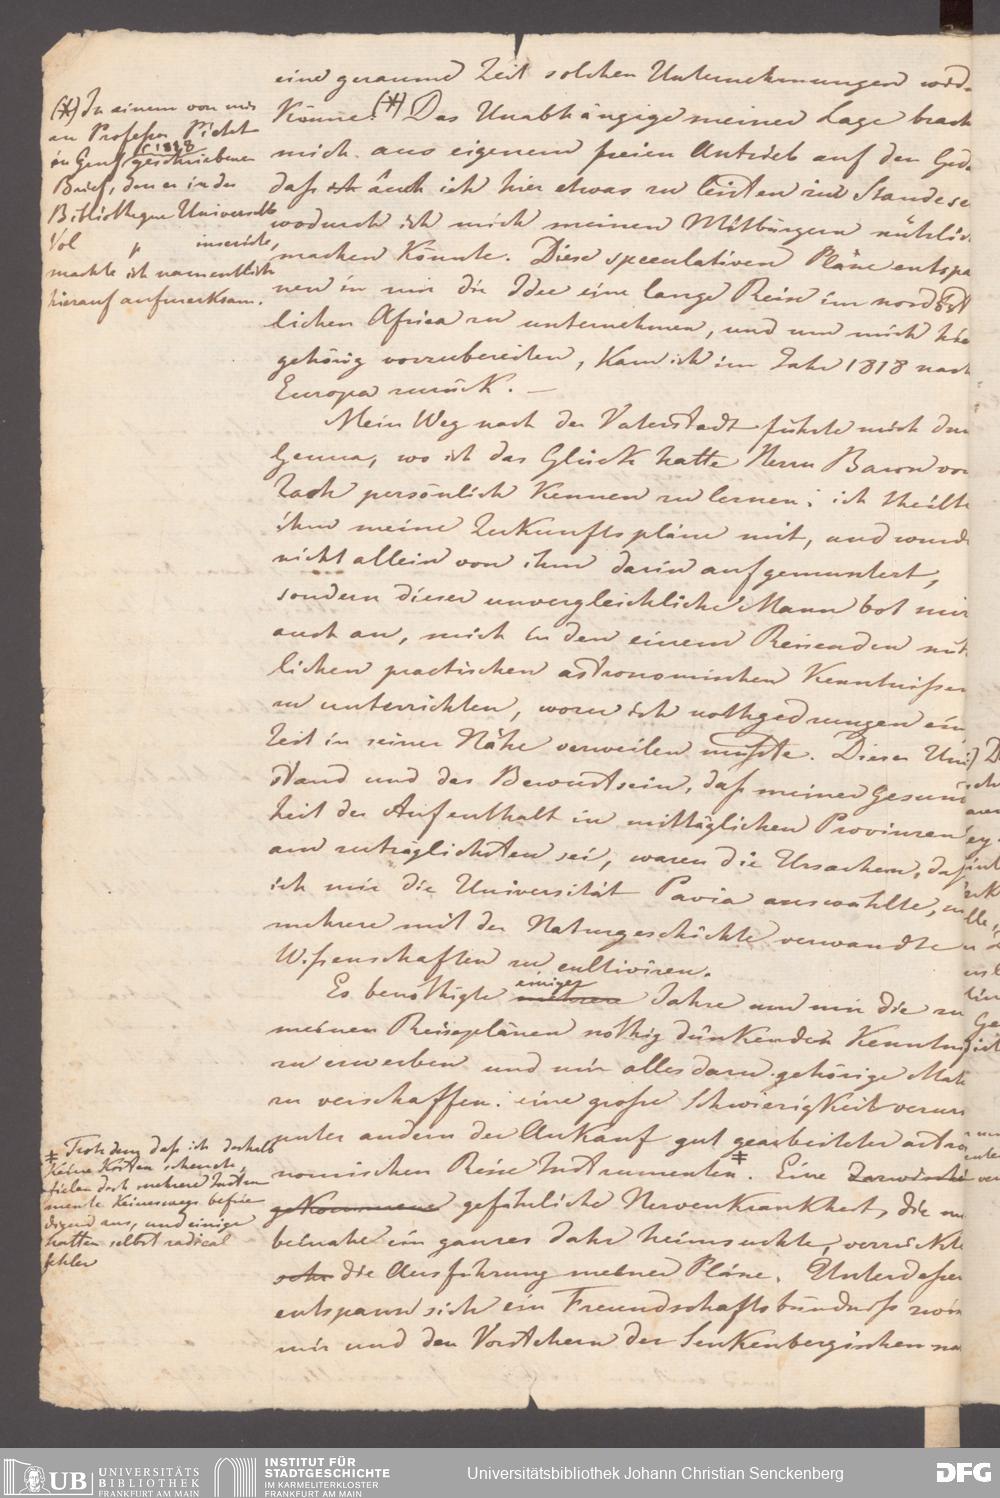 eine geraume Zeit solchen Unternehmungen wid
Könne. (*) Das Unabhängige meiner Lage brach
mich aus eigenem freien Antrieb auf den Ged
daß auch ich hier etwas zu leisten im Stande se
wodurch ich mich meinen Mitbürgern nützlic
machen Könnte. Diese speculativen Pläne entspa
nen in mir die Idee eine lange Reise im nordöst
lichen Africa zu unternehmen, und um mich hie
gehörig vorzubereiten, Kam ich im Jahr 1818 nach
Europa zurück. —
Mein Weg nach der Vaterstadt führte mich dur
Genua, wo ich das Glück hatte Herrn Baron von
Zach persönlich Kennen zu lernen; ich theilte
ihm meine Zukunftspläne mit, und wurde
nicht allein von ihm darin aufgemuntert,
sondern dieser unvergleichliche Mann bot mir
auch an, mich in den einem Reisenden nüt
lichen practischen astronomischen Kenntnissen
zu unterrichten, wozu ich nothgedrungen ein
Zeit in seiner Nähe verweilen mußte. Dieser Um
stand und das Bewustsein, daß meiner Gesund
heit der Aufenthalt in mittäglichen Provinzen
am zuträglichsten sei, waren die Ursachen, daß
ich mir die Universität Pavia auswählte, u
mehrere mit der Naturgeschichte verwandte
Wissenschaften zu cultiviren.
Es benöthigte mehrere einiger Jahre um mir die zu
meinen Reiseplänen nöthig dünkenden Kenntnis
zu erwerben und mir alles dazu gehörige Mate
zu verschaffen: eine große Schwierigkeit verur
unter andern der Ankauf gut gearbeiteter astro
nomischen Reise Instrumenten ‡. Eine Dazwische
gekommene gefährliche Nervenkrankheit, die m
beinahe ein ganzes Jahr heimsuchte, verrückte
sehr die Ausführung meiner Pläne. Unterdessen
entspann sich ein Freundschaftsbündniß zwis
mir und den Vorstehern der Senkenbergischen na
(*) In einem von mir
an Professor Pictet
in Genf 1818 geschriebenen
Brief, den er in der
Bibliotheque Universelle
Vol p inserirte,
machte ich namentlich
hierauf aufmerksam.
‡ Trotzdem daß ich deshalb
Keine Kosten scheute,
fielen doch mehrere Instru
mente Keineswegs befrie
digend aus, und einige
hatten selbst radical
fehler
UB UNIVERSITÄTS
BIBLIOTHEK
FRANKFURT AM MAIN
INSTITUT FÜR
STADTGESCHICHTE
IM KARMELITERKLOSTER
FRANKFURT AM MAIN
Universitätsbibliothek Johann Christian Senckenberg
DFG